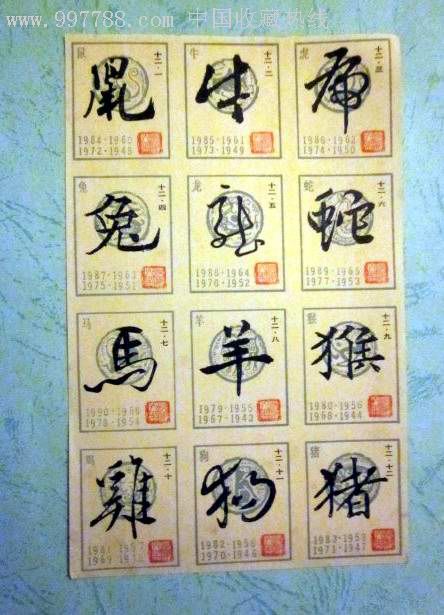 www.997788.com 中国收藏热线
鼠
十二·一
鼠
1984·1960
1972·1948
牛
十二·二
牛
1985·1961
1973·1949
虎
十二·三
虎
1986·1962
1974·1950
兔
十二·四
兔
1987·1963
1975·1951
龙
十二·五
龍
1988·1964
1976·1952
蛇
十二·六
蛇
1989·1965
1977·1953
马
十二·七
馬
1990·1966
1978·1954
羊
十二·八
羊
1979·1955
1967·1943
猴
十二·九
猴
1980·1956
1968·1944
鸡
十二·十
雞
1981·1957
1969
狗
十二·十一
狗
1982·1958
1970·1946
猪
十二·十二
猪
1983·1959
1971·1947